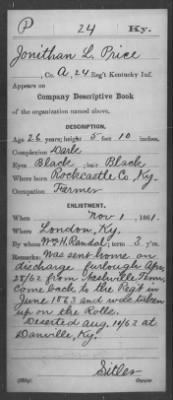 P 24 Ky.
Jonithan L. Price
, Co. A, 24 Reg't Kentucky Inf.
Appears on
Company Descriptive Book
of the organization named above.
DESCRIPTION.
Age 26 years; height 5 feet 10 inches.
Complexion Dark
Eyes Black; hair Black
Where born Rockcastle Co, Ky.
Occupation Farmer
ENLISTMENT.
When Nov 1, 1861.
Where London, Ky.
By whom Wm H. Randal; term 3 y'rs.
Remarks: Was sent home on
discharge furlough Apr.
28/62 from Tenn,
come back to the Regt in
June 1863 and was taken
up on the Rolls.
Deserted Aug. 14/63 at
Danville, Ky.
Sitler
Copyist.